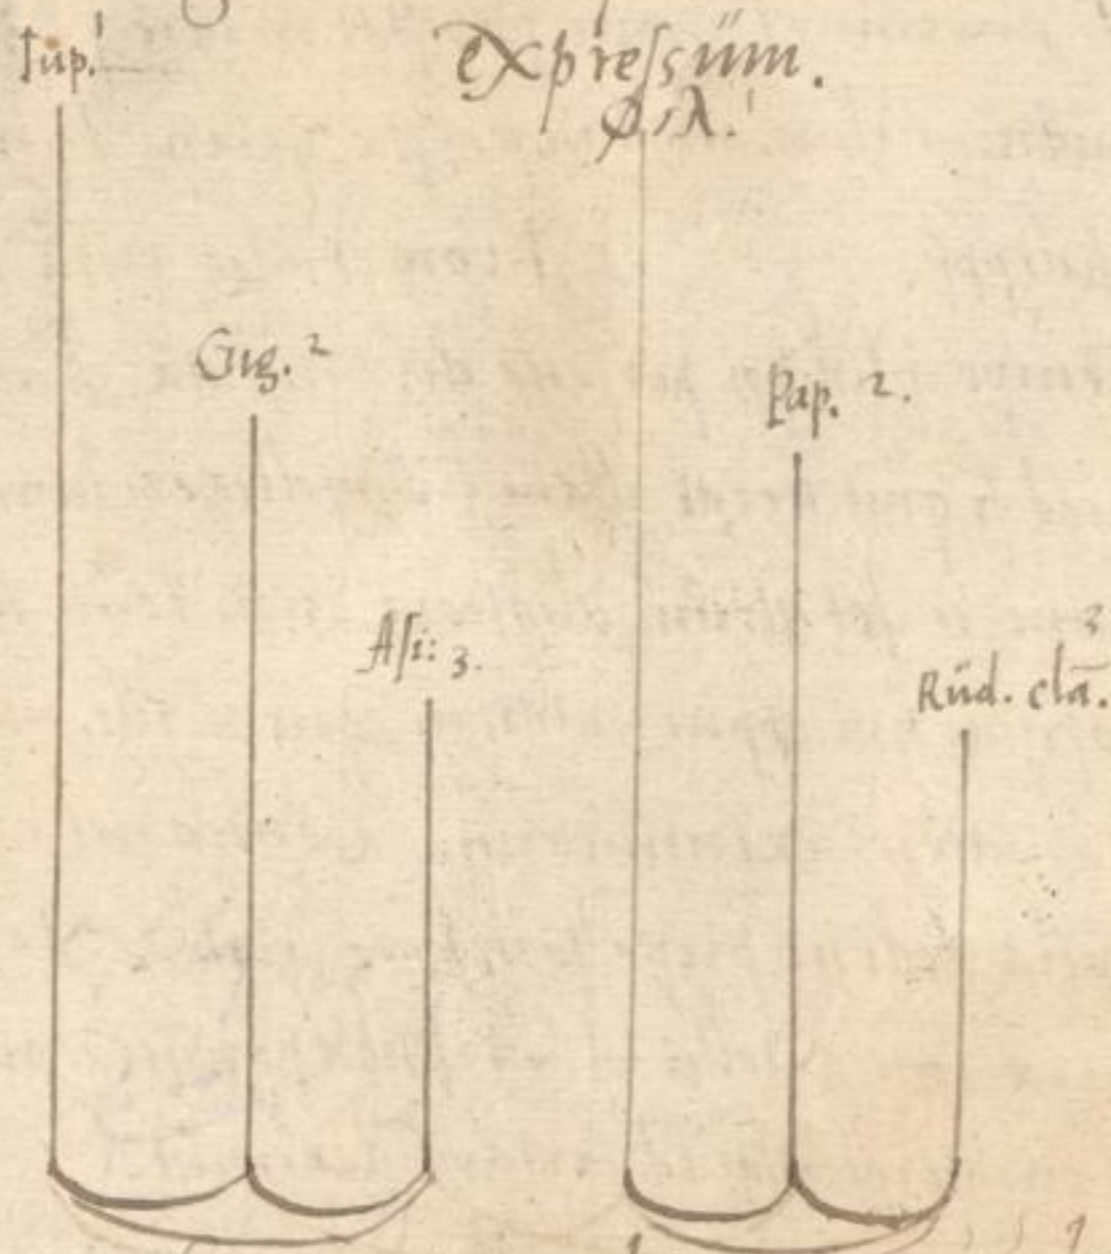 Iup. 1
expressüm.
φιλ. 1
Gig. 2
Pap. 2.
Asi: 3.
Rüd. clā. 3